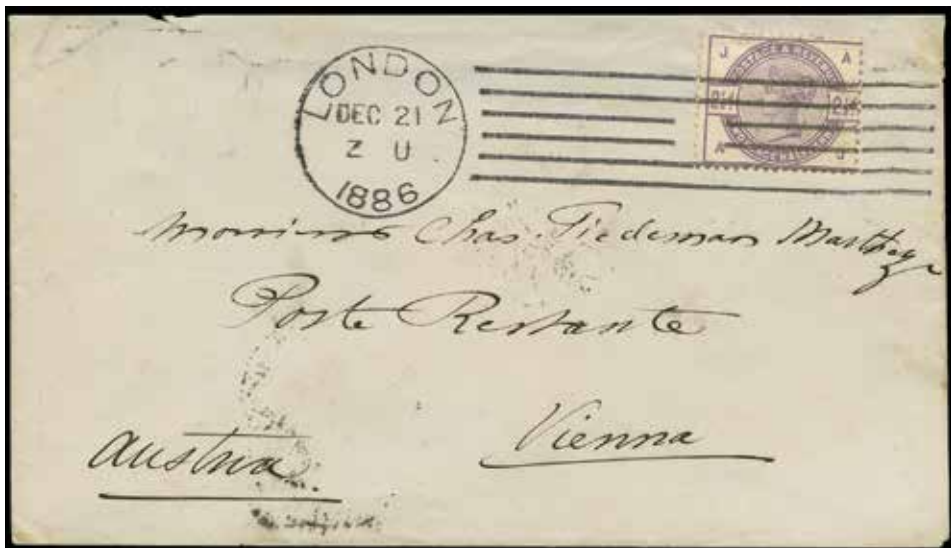 LONDON
DEC 21
Z U
1886
J A
2½ 2½
A J
Chas. Tiedeman
Poste Restante
Vienna
Austria.